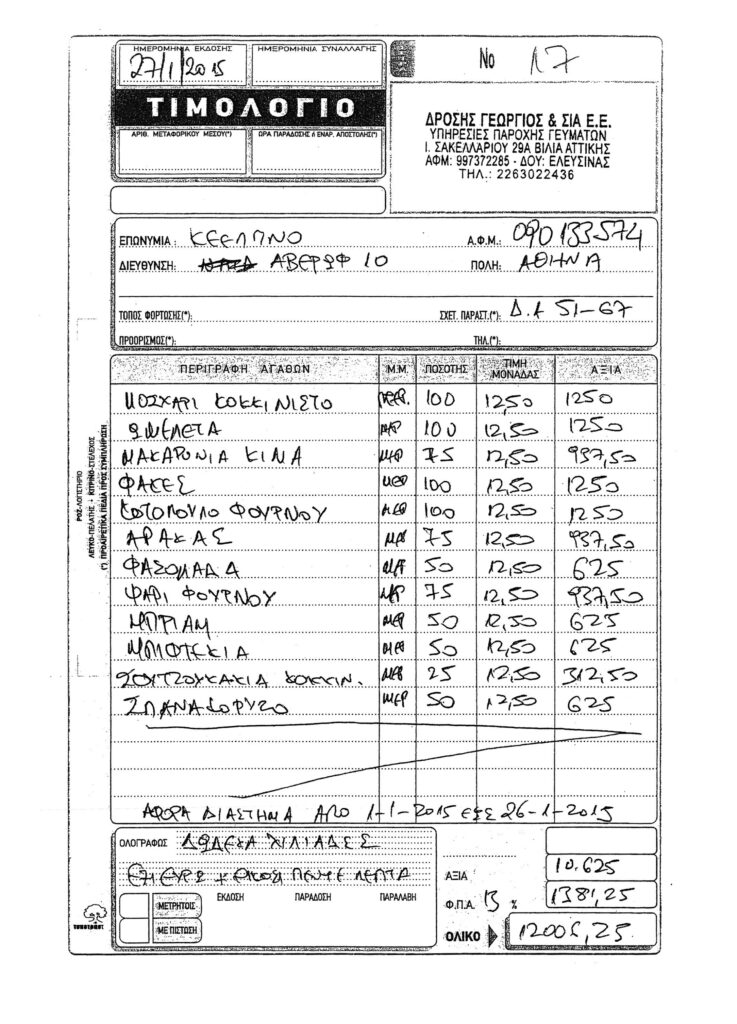 ΗΜΕΡΟΜΗΝΙΑ ΕΚΔΟΣΗΣ ΗΜΕΡΟΜΗΝΙΑ ΣΥΝΑΛΛΑΓΗΣ
27/1/2015
No 17
ΤΙΜΟΛΟΓΙΟ
ΑΡΙΘ. ΜΕΤΑΦΟΡΙΚΟΥ ΜΕΣΟΥ(*) ΩΡΑ ΠΑΡΑΔΟΣΗΣ / ΕΝΑΡ. ΑΠΟΣΤΟΛΗΣ(*)
ΔΡΟΣΗΣ ΓΕΩΡΓΙΟΣ & ΣΙΑ Ε.Ε.
ΥΠΗΡΕΣΙΕΣ ΠΑΡΟΧΗΣ ΓΕΥΜΑΤΩΝ
Ι. ΣΑΚΕΛΛΑΡΙΟΥ 29Α ΒΙΛΙΑ ΑΤΤΙΚΗΣ
ΑΦΜ: 997372285 - ΔΟΥ: ΕΛΕΥΣΙΝΑΣ
ΤΗΛ.: 2263022436
ΕΠΩΝΥΜΙΑ: ΚΕΕΛΠΝΟ Α.Φ.Μ.: 090133574
ΔΙΕΥΘΥΝΣΗ: ΑΒΕΡΩΦ 10 ΠΟΛΗ: ΑΘΗΝΑ
ΤΟΠΟΣ ΦΟΡΤΩΣΗΣ(*): ΣΧΕΤ. ΠΑΡΑΣΤ.(*): Δ.Α 51-67
ΠΡΟΟΡΙΣΜΟΣ(*): ΤΗΛ.(*):
ΠΕΡΙΓΡΑΦΗ ΑΓΑΘΩΝ Μ.Μ. ΠΟΣΟΤΗΣ ΤΙΜΗ ΜΟΝΑΔΑΣ ΑΞΙΑ
ΜΟΣΧΑΡΙ ΚΟΚΚΙΝΙΣΤΟ ΜΕΡ. 100 12,50 1250
ΩΜΕΛΕΤΑ ΜΕΡ 100 12,50 1250
ΜΑΚΑΡΟΝΙΑ ΚΙΜΑ ΜΕΡ 75 12,50 937,50
ΦΑΚΕΣ ΜΕΡ 100 12,50 1250
ΚΟΤΟΠΟΥΛΟ ΦΟΥΡΝΟΥ ΜΕΡ 100 12,50 1250
ΑΡΑΚΑΣ ΜΕΡ 75 12,50 937,50
ΦΑΣΟΛΑΔΑ ΜΕΡ 50 12,50 625
ΨΑΡΙ ΦΟΥΡΝΟΥ ΜΕΡ 75 12,50 937,50
ΜΠΡΙΑΜ ΜΕΡ 50 12,50 625
ΜΠΙΦΤΕΚΙΑ ΜΕΡ 50 12,50 625
ΣΟΥΤΖΟΥΚΑΚΙΑ ΚΟΚΚΙΝ. ΜΕΡ 25 12,50 312,50
ΣΠΑΝΑΚΟΡΥΖΟ ΜΕΡ 50 12,50 625
ΑΦΟΡΑ ΔΙΑΣΤΗΜΑ ΑΠΟ 1-1-2015 ΕΩΣ 26-1-2015
ΟΛΟΓΡΑΦΩΣ ΔΩΔΕΚΑ ΧΙΛΙΑΔΕΣ
ΕΞΙ ΕΥΡΩ & ΕΙΚΟΣΙ ΠΕΝΤΕ ΛΕΠΤΑ
ΑΞΙΑ 10.625
ΕΚΔΟΣΗ ΠΑΡΑΔΟΣΗ ΠΑΡΑΛΑΒΗ
Φ.Π.Α. 13 % 1381,25
ΜΕΤΡΗΤΟΙΣ
ΜΕ ΠΙΣΤΩΣΗ
ΟΛΙΚΟ 12006,25
ΡΟΖ-ΛΟΓΙΣΤΗΡΙΟ
ΛΕΥΚΟ-ΠΕΛΑΤΗΣ - ΚΙΤΡΙΝΟ-ΣΤΕΛΕΧΟΣ
(*) ΠΡΟΑΙΡΕΤΙΚΑ ΠΕΔΙΑ ΠΡΟΣ ΣΥΜΠΛΗΡΩΣΗ